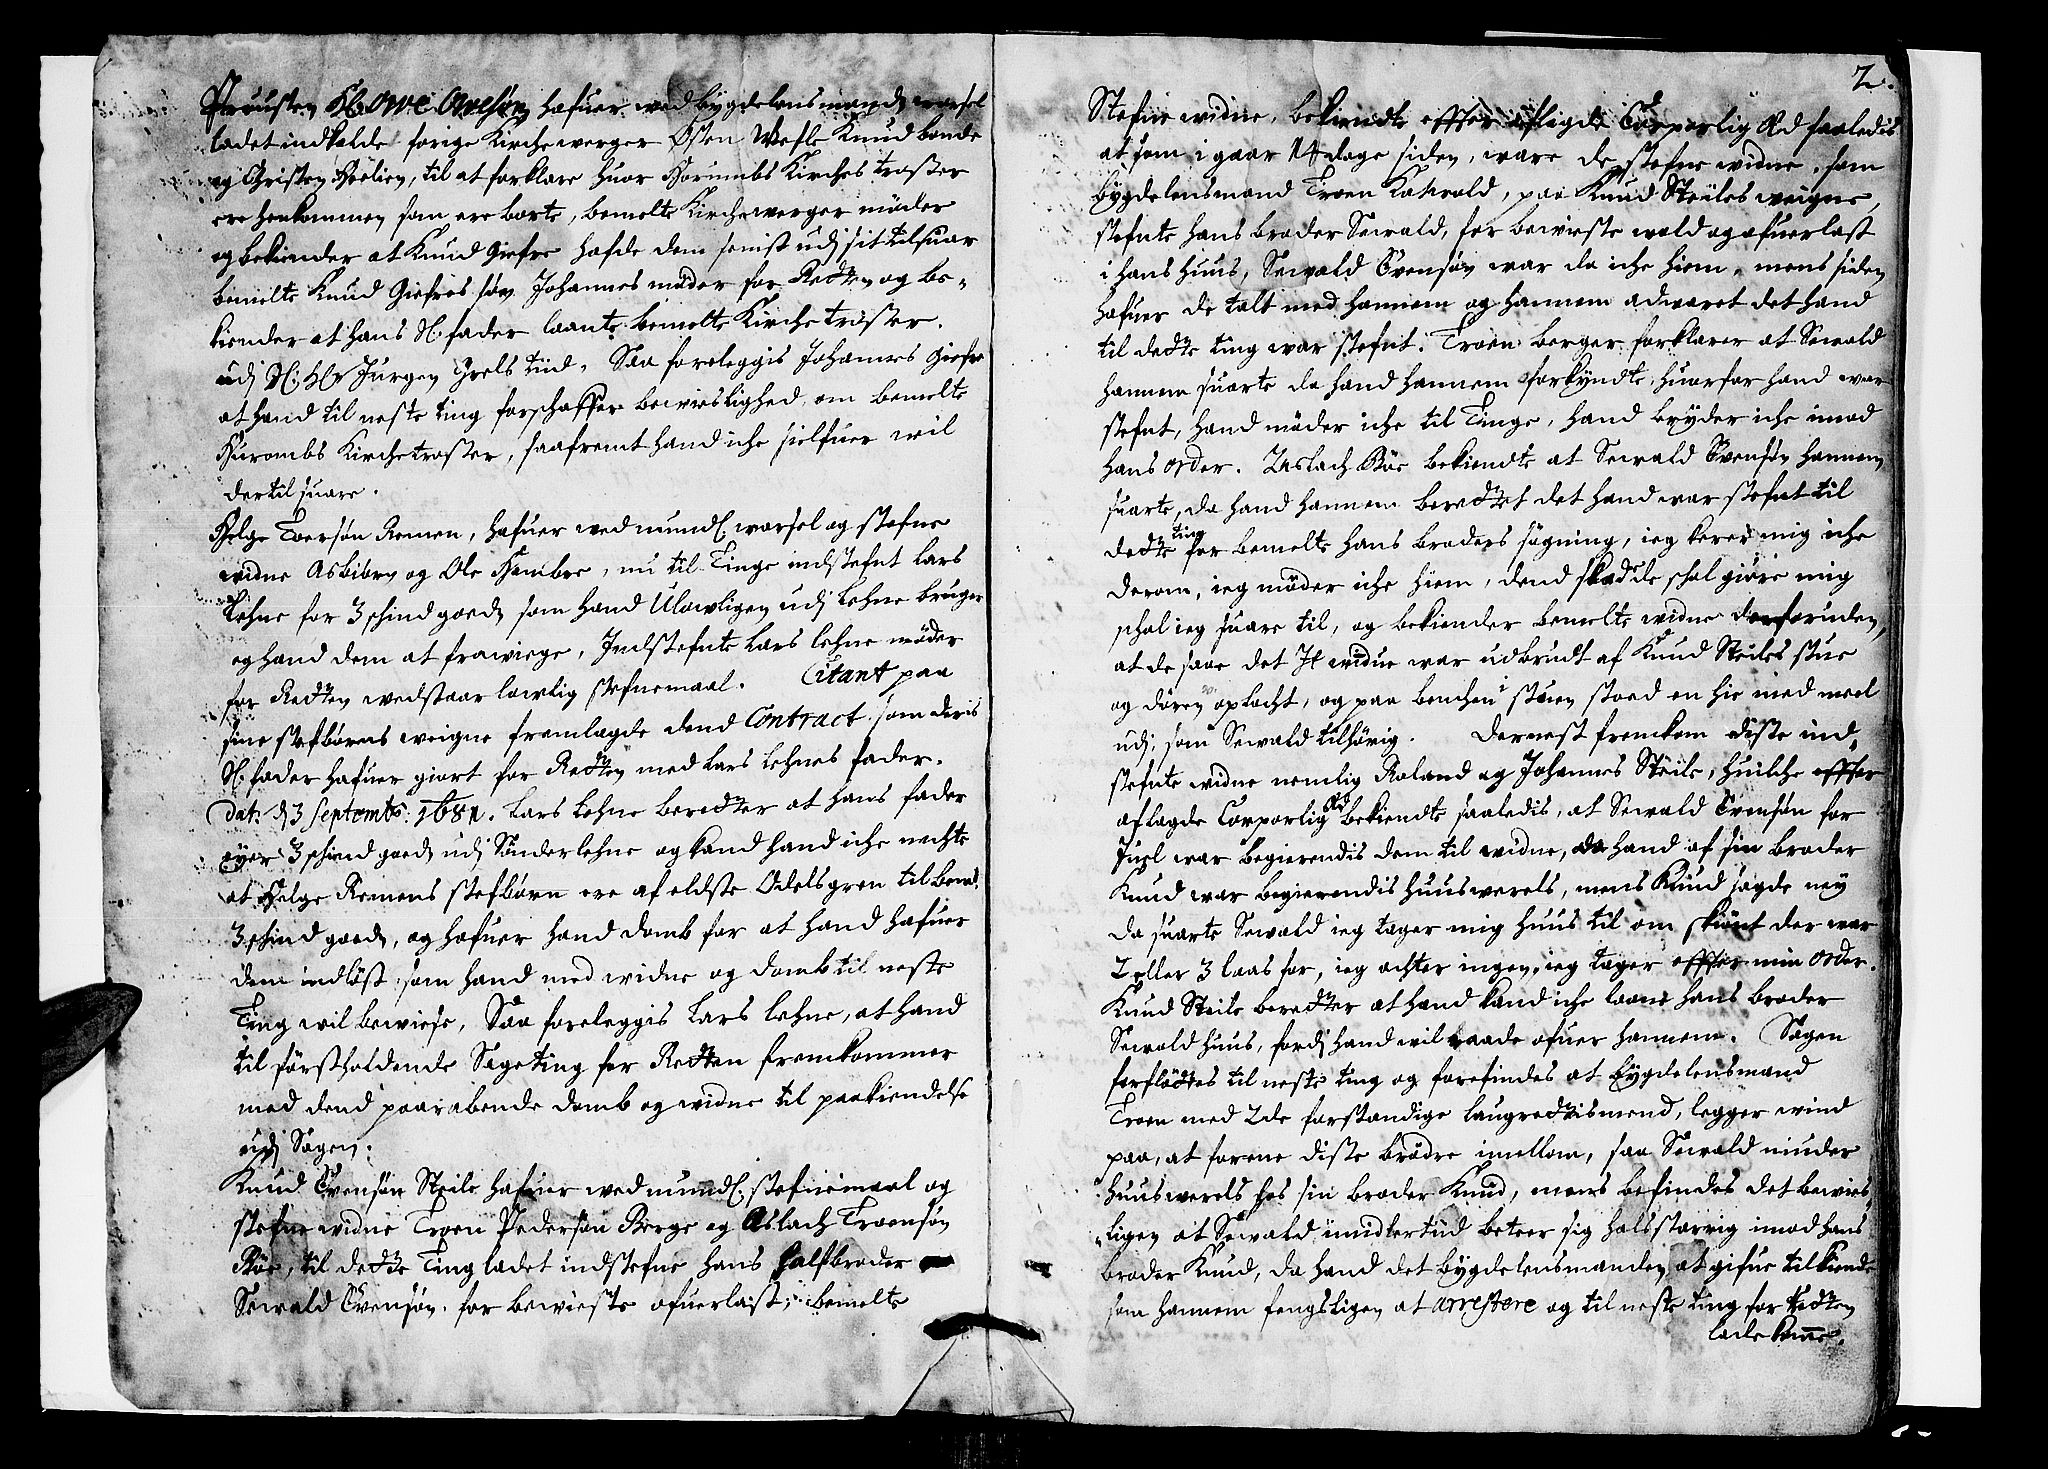 Prousten Hr Owe Owesøn hafuer ved bygdelensmand warsel
ladet indkalde forige Kirchewerger Østen Westle Knud bonde
og Christen Hvëlien, til at forklare huor Hurumbs Kirches troster
ere henkommen som ere borte, bemelte Kirchewerger møder
og bekiender at Knud Giefre hafde dem senist udj sit tilsuar
bemelte Knud Giefres søn Johannes møder for Retten og be-
kiender at hans Sl: fader laante bemelte Kirche troster.
udj Sl: Hr Jurgen Griels tiid. Saa foreleggis Johannes Giefre
at hand til neste ting forschaffer bewieslighed om bemelte
Hurombs Kirchetroster, saafremt hand iche sielfuer wil
dertil suare.
Helge Toersøn Remen, hafuer wed mundl: warsel og stefne
widne Asbiörn og Ole Hambre, nu til Tinge indstefnt Lars
Lehne for 3 schind goedz som hand Ulowligen udj Lehne bruger
og hand dem at frawiege, Indstefnte Lars Lehne møder
for Retten wedstaar lowlig stefnemaal. Citant paa
sine stefbørns weigne fremlagde dend Contract som deris
Sl: fader hafuer giort for Retten med Lars Lehnes fader.
Dat: d 3 Septemb: 1681. Lars Lehne beretter at hans fader
eyer 3 schind goedz udj Sönderlehne og kand hand iche nechte
at Helge Remens stefbørn ere af eldste Odelsgren til bemt
3 schind goedz, og hafuer hand domb for at hand hafuer
dem indløst, som hand med widne og domb til neste
Ting wil bewiese, Saa foreleggis Lars Lehne, at hand
til förstholdende Sageting for Retten fremkommer
med dend paaraabende domb og widne til paakiendelse
udj Sagen.
Knud Svensøn Steile hafuer wed mundl: stefnemaal og
stefne widne Troen Pedersøn Berge og Aslach Troensøn
Böe, til dette Ting ladet indstefne hans halfbroder
Sewald Svensøn, for bewieste ofuerlast; bemelte
2.
Stefne widne, bekiendte effter aflagde Corporlig Æd saaledis
at som i gaar 14 dage siden, ware de stefne widne, som
bygdelensmand Troen Kahrald, paa Knud Steiles weigne,
stefnte hans broder Sewald, for bewieste wold og ofuerlast
i hans huus, Sewald Svensøn war da iche hiem, mens siden
hafuer de talt med hannem og hannem adwaret det hand
til dette ting war stefnt. Troen berger forklarer at Sewald
hannem suarte da hand hannem forkyndte, huorfor hand war
stefnt, hand møder iche til Tinge, hand bryder iche imod
hans order. Aslach Böe bekiendte at Sewald Svensøn hannem
suarte, da hand hannem berettet det hand war stefnt til
dette ting for bemelte hans broders søgning, ieg kerer mig iche
derom, ieg møder iche hiem, dend skade de schal giøre mig
schal ieg suare til, og bekiender bemelte widne desforuden,
at de saae det it widue war udbrudt af Knud Steiles stue
og dören oplacht, og paa benchen i stuen stoed en hie med meel
udj, som Sewald tilhørig. Dernest fremkom diste ind-
stefnte widne nemlig Roland og Johannes Steile, huilche effter
aflagde Corporlig Æd bekiendte saaledis, at Sewald Svensøn for
Juel war begierendis dem til widne, da hand af sin broder
Knud war begierendis huuswerels, mens Knud sagde ney
da suarte Sewald ieg tager mig huus til om skiönt der war
2 eller 3 laas for, ieg achter ingen, ieg tager effter min order.
Knud Steile beretter at hand kand iche laane hans broder
Sewald huus, fordj hand wil raade ofuer hannem. Sagen
forfløttes til neste ting og forefindes at bygdelensmand
Troen med 2de forstandige laugrettismend, legger wind
paa, at forene diste brödre imellom, saa Sewald niuder
huuswerels hos sin broder Knud, mens befindes det bewies-
ligen at Sewald imidlertiid beteer sig halsstarrig imod hans
broder Knud, da hand det bygdelensmanden at gifue tilkiende
som hannem fengsligen at arrestere og til neste ting for Retten
lade komme.